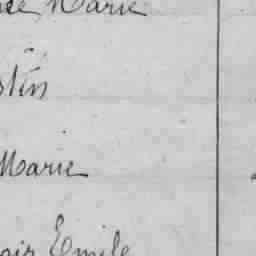 Marie
stin
Marie
oir Emile